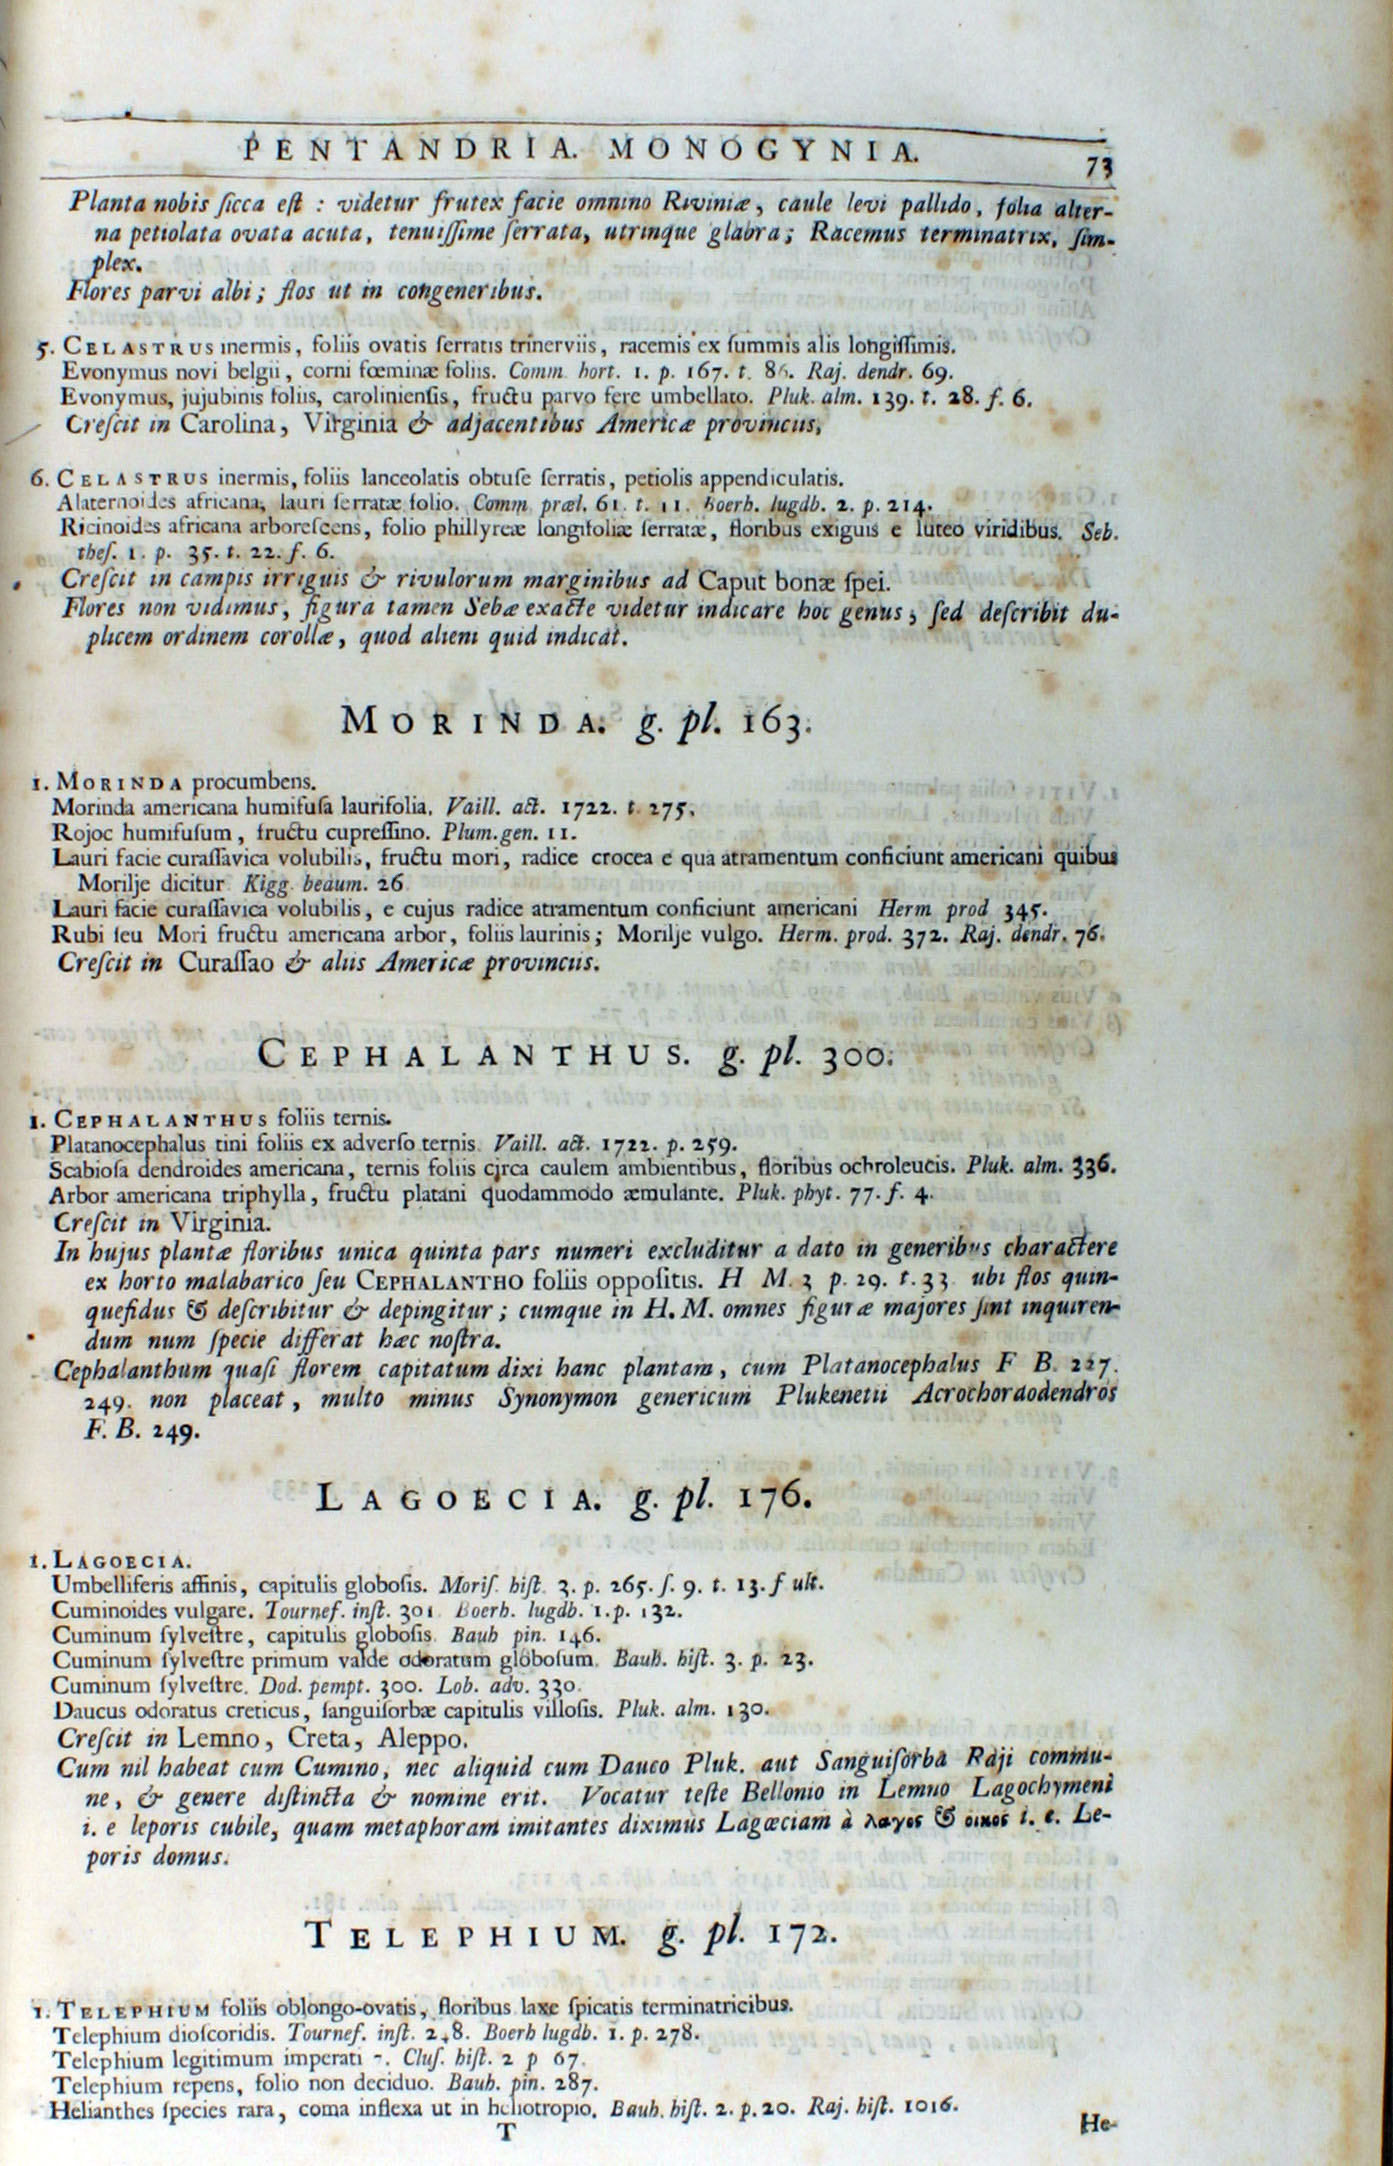 PENTANDRIA. MONOGYNIA. 73
Planta nobis ſicca eſt : videtur frutex facie omnino Riviniæ, caule levi pallido, folia alter-
na petiolata ovata acuta, tenuiſſime ſerrata, utrinque glabra; Racemus terminatrix, ſim-
plex.
Flores parvi albi; flos ut in congeneribus.
5. CELASTRUS inermis, foliis ovatis ſerratis trinerviis, racemis ex ſummis alis longiſſimis.
Evonymus novi belgii, corni fœminæ foliis. Comm hort. 1. p. 167. t. 86. Raj. dendr. 69.
Evonymus, jujubinis foliis, carolinienſis, fructu parvo fere umbellato. Pluk. alm. 139. t. 28. f. 6.
Creſcit in Carolina, Virginia & adjacentibus Americæ provinciis,
6. CELASTRUS inermis, foliis lanceolatis obtuſe ſerratis, petiolis appendiculatis.
Alaternoides africana, lauri ſerratæ folio. Comm præl. 61. t. 11. Boerh. lugdb. 2. p. 214.
Ricinoides africana arboreſcens, folio phillyreæ longifoliæ ſerratæ, floribus exiguis e luteo viridibus. Seb.
theſ. 1. p. 35. t. 22. f. 6.
Creſcit in campis irriguis & rivulorum marginibus ad Caput bonæ ſpei.
Flores non vidimus, figura tamen Sebæ exacte videtur indicare hoc genus; ſed deſcribit du-
plicem ordinem corollæ, quod alieni quid indicat.
MORINDA. g. pl. 163.
1. MORINDA procumbens.
Morinda americana humifuſa laurifolia. Vaill. act. 1722. t. 275.
Rojoc humifuſum, fructu cupreſſino. Plum. gen. 11.
Lauri facie curaſſavica volubilis, fructu mori, radice crocea e qua atramentum conficiunt americani quibus
Morilje dicitur Kigg. beaum. 26
Lauri facie curaſſavica volubilis, e cujus radice atramentum conficiunt americani Herm prod 345.
Rubi ſeu Mori fructu americana arbor, foliis laurinis; Morilje vulgo. Herm. prod. 372. Raj. dendr. 76.
Creſcit in Curaſſao & aliis Americæ provinciis.
CEPHALANTHUS. g. pl. 300.
1. CEPHALANTHUS foliis ternis.
Platanocephalus tini foliis ex adverſo ternis. Vaill. act. 1722. p. 259.
Scabioſa dendroides americana, ternis foliis circa caulem ambientibus, floribus ochroleucis. Pluk. alm. 336.
Arbor americana triphylla, fructu platani quodammodo æmulante. Pluk. phyt. 77. f. 4.
Creſcit in Virginia.
In hujus plantæ floribus unica quinta pars numeri excluditur a dato in generibus charactere
ex horto malabarico ſeu CEPHALANTHO foliis oppoſitis. H M. 3 p. 29. t. 33 ubi flos quin-
quefidus & deſcribitur & depingitur; cumque in H. M. omnes figuræ majores ſint inquiren-
dum num ſpecie differat hæc noſtra.
Cephalanthum quaſi florem capitatum dixi hanc plantam, cum Platanocephalus F B. 227.
249. non placeat, multo minus Synonymon genericum Plukenetii Acrochordodendros
F. B. 249.
LAGOECIA. g. pl. 176.
1. LAGOECIA.
Umbelliferis affinis, capitulis globoſis. Moriſ. hiſt. 3. p. 265. ſ. 9. t. 13. f ult.
Cuminoides vulgare. Tournef. inſt. 301 Boerh. lugdb. 1. p. 132.
Cuminum ſylveſtre, capitulis globoſis. Bauh pin. 146.
Cuminum ſylveſtre primum valde odoratum globoſum. Bauh. hiſt. 3. p. 23.
Cuminum ſylveſtre. Dod. pempt. 300. Lob. adv. 330.
Daucus odoratus creticus, ſanguiſorbæ capitulis villoſis. Pluk. alm. 130.
Creſcit in Lemno, Creta, Aleppo.
Cum nil habeat cum Cumino, nec aliquid cum Dauco Pluk. aut Sanguiſorba Raji commu-
ne, & genere diſtincta & nomine erit. Vocatur teſte Bellonio in Lemno Lagochymeni
i. e leporis cubile, quam metaphoram imitantes diximus Lagœciam à λαγος & οικος i. e. Le-
poris domus.
TELEPHIUM. g. pl. 172.
1. TELEPHIUM foliis oblongo-ovatis, floribus laxe ſpicatis terminatricibus.
Telephium dioſcoridis. Tournef. inſt. 248. Boerh lugdb. 1. p. 278.
Telephium legitimum imperati. Cluſ. hiſt. 2 p 67.
Telephium repens, folio non deciduo. Bauh. pin. 287.
Helianthes ſpecies rara, coma inflexa ut in heliotropio. Bauh. hiſt. 2. p. 20. Raj. hiſt. 1016.
T He-